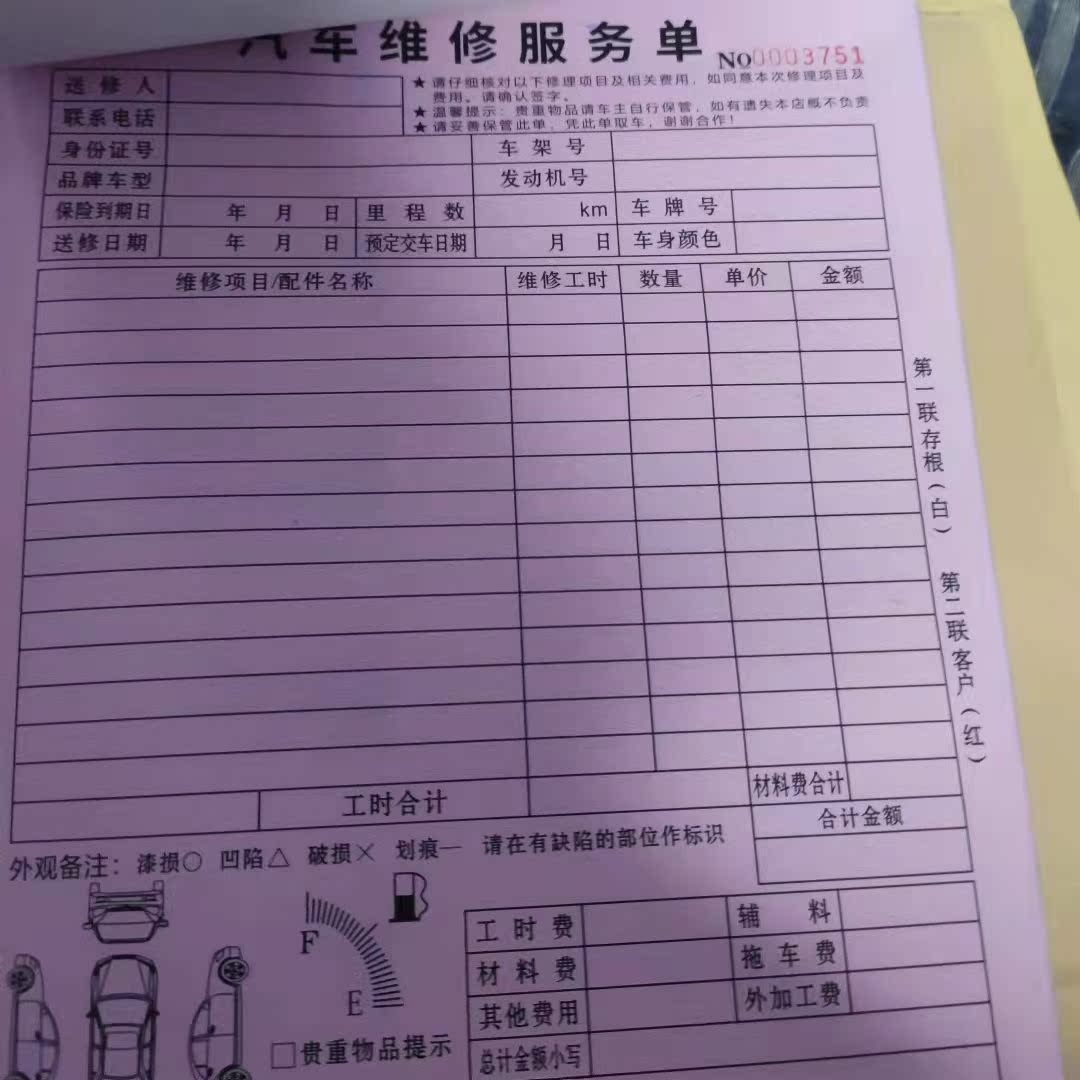 汽车维修服务单
No0003751
送修人
联系电话
★请仔细核对以下修理项目及相关费用,如同意本次修理项目及
费用。请确认签字。
★温馨提示:贵重物品请车主自行保管,如有遗失本店概不负责
★请妥善保管此单,凭此单取车,谢谢合作!
身份证号 车架号
品牌车型 发动机号
保险到期日 年 月 日 里程数 km 车牌号
送修日期 年 月 日 预定交车日期 月 日 车身颜色
维修项目/配件名称 维修工时 数量 单价 金额
第一联存根(白)
第二联客户(红)
工时合计 材料费合计
合计金额
外观备注:漆损○ 凹陷△ 破损× 划痕— 请在有缺陷的部位作标识
F
E
□贵重物品提示
工时费 辅料
材料费 拖车费
其他费用 外加工费
总计金额小写